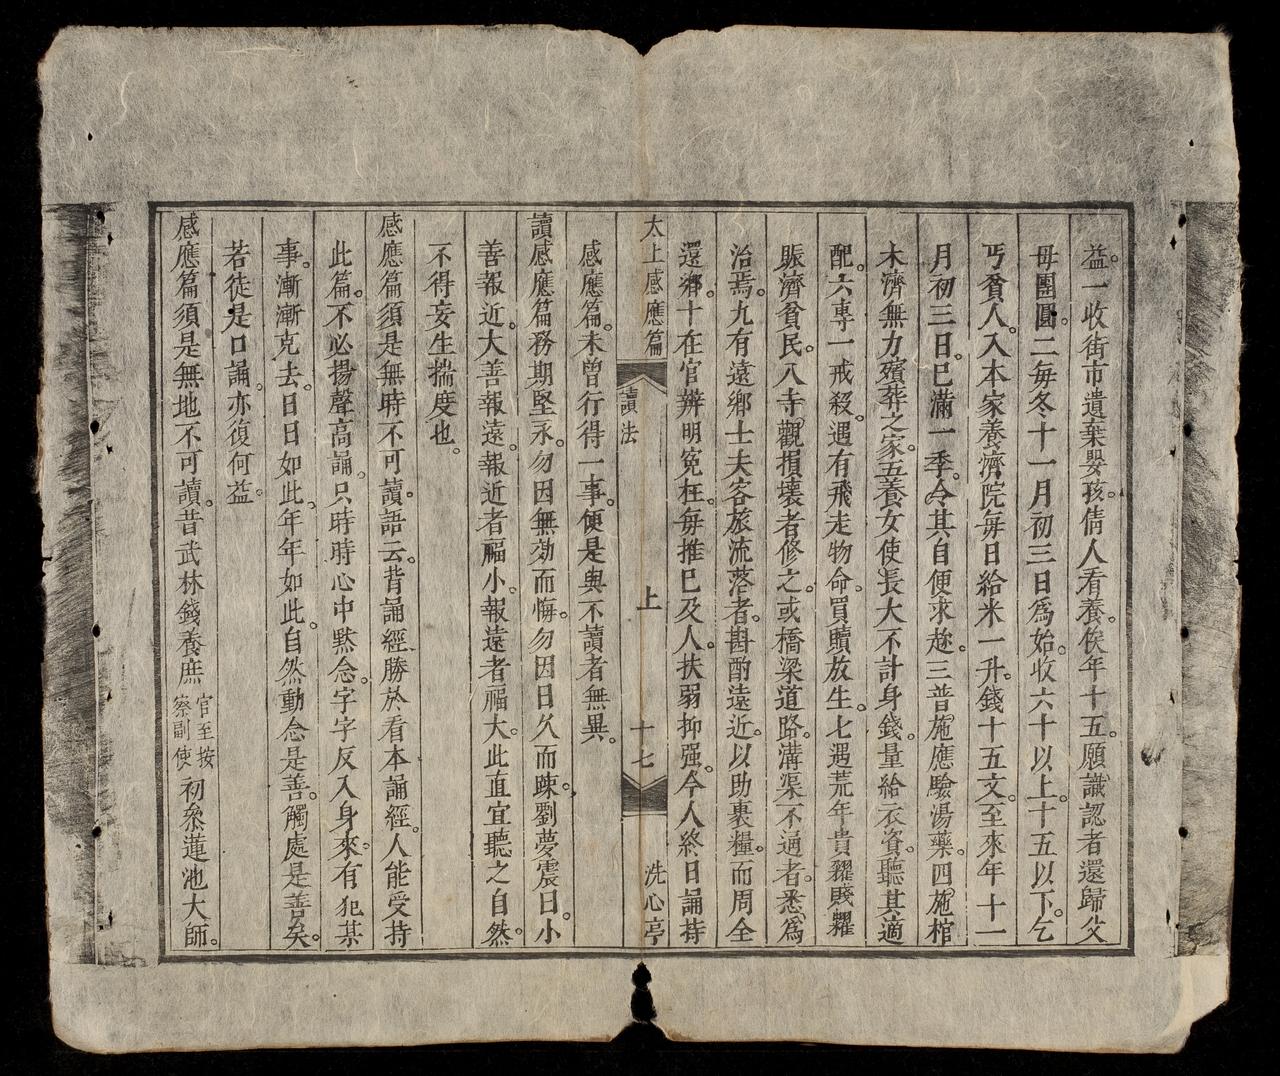 益。一收街市遺棄嬰孩。倩人看養。俟年十五。願識認者還歸父
母團圓。二每冬十一月初三日爲始。收六十以上。十五以下。乞
丐貧人。入本家養濟院每日給米一升。錢十五文。至來年十一
月初三日。已滿一季。令其自便求趂。三普施應驗湯藥。四施棺
木濟無力殯葬之家。五養女使長大不計身錢。量給衣資。聽其適
配。六專一戒殺。遇有飛走物命。買贖放生。七遇荒年貴糴賤糶
賑濟貧民。八寺觀損壞者修之。或橋梁道路。溝渠不通者。悉爲
治焉。九有遠鄉士夫客旅流落者。斟酌遠近。以助裹糧。而周全
還鄉。十在官辨明寃枉。每推已及人。扶弱抑强。今人終日誦持
太上感應篇 讀法 上 十七 洗心亭
感應篇。未曾行得一事。便是與不讀者無異。
讀感應篇務期堅永。勿因無効而悔。勿因日久而踈。劉夢震曰。小
善報近。大善報遠。報近者福小。報遠者福大。此直宜聽之自然。
不得妄生揣度也。
感應篇須是無時不可讀。語云。背誦經勝於看本誦經。人能受持
此篇。不必揚聲高誦。只時時心中黙念。字字反入身來。有犯某
事。漸漸克去。日日如此。年年如此。自然動念是善。觸處是善矣。
若徒是口誦。亦復何益。
感應篇須是無地不可讀。昔武林錢養庶官至按察副使初叅蓮池大師。